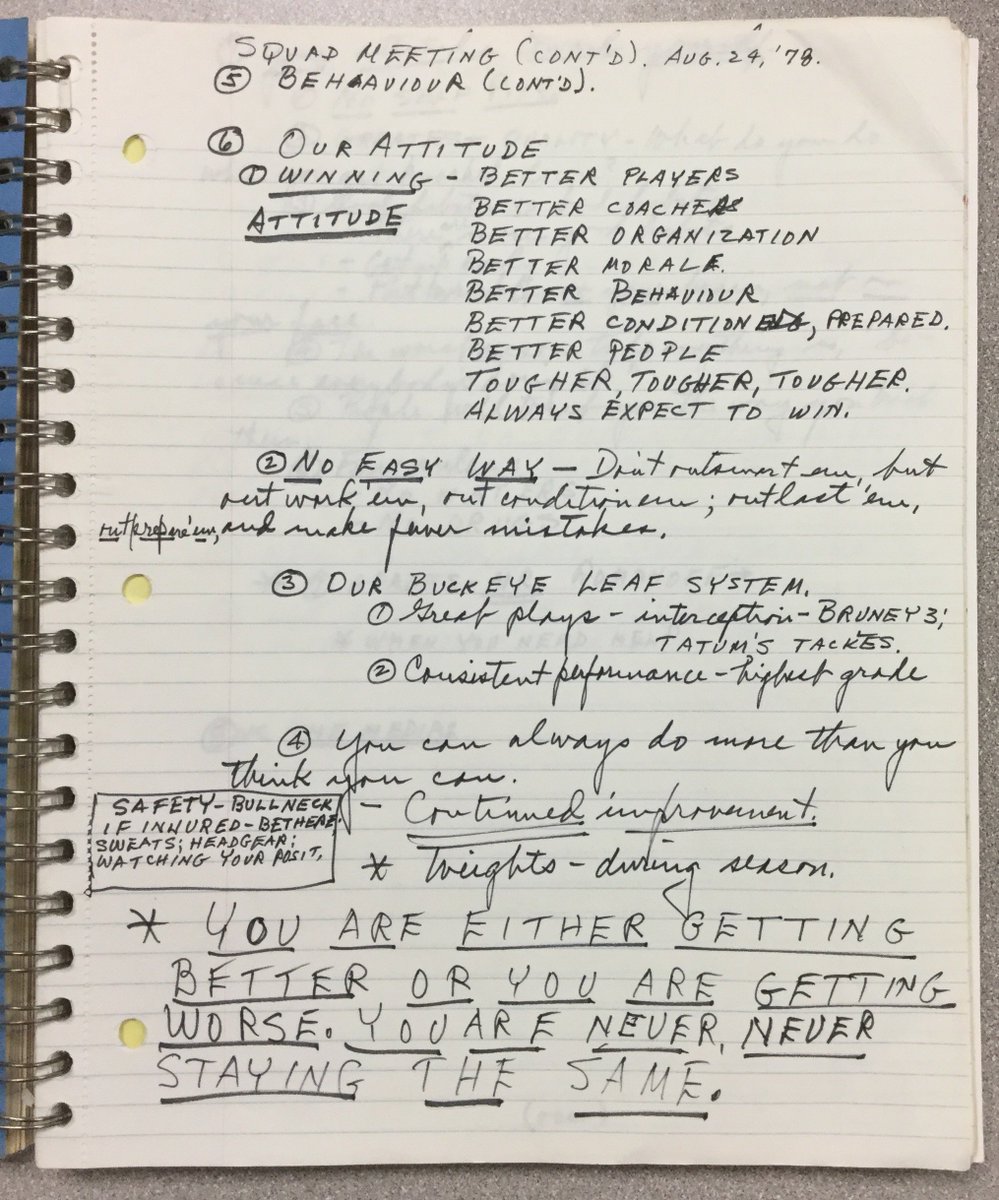 SQUAD MEETING (CONT'D). AUG. 24, '78.
⑤ BEHAVIOUR (CONT'D).
⑥ OUR ATTITUDE
① WINNING - BETTER PLAYERS
ATTITUDE BETTER COACHES
BETTER ORGANIZATION
BETTER MORALE.
BETTER BEHAVIOUR
BETTER CONDITIONED, PREPARED.
BETTER PEOPLE
TOUGHER, TOUGHER, TOUGHER.
ALWAYS EXPECT TO WIN.
② NO EASY WAY - Don't outsmart em, but
out work 'em, out condition em; outlast 'em,
outprepare 'em, and make fewer mistakes.
③ OUR BUCKEYE LEAF SYSTEM.
① Great plays - interception - BRUNEY 3;
TATUM'S TACKES.
② Consistent performance - highest grade
④ You can always do more than you
think you can.
- Continued improvement.
SAFETY - BULLNECK
IF INJURED - BE THERE.
SWEATS; HEADGEAR;
WATCHING YOUR POSIT.
* Weights - during season.
* YOU ARE EITHER GETTING
BETTER OR YOU ARE GETTING
WORSE. YOU ARE NEVER, NEVER
STAYING THE SAME.